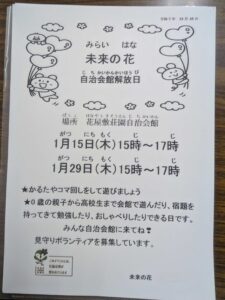 みらい はな
未来の花
じちかいかんかいほうび
自治会館解放日
ばしょ
場所 花屋敷荘園自治会館
がつ にちもく じ じ
1月15日(木)15時～17時
がつ にちもく じ じ
1月29日(木)15時～17時
★かるたやコマ回しをして遊びましょう
★0歳の親子から高校生まで会館で遊んだり、宿題を
持ってきて勉強したり、おしゃべりしたりできる日です。
みんな自治会館に来てね!
見守りボランティアを募集しています。
未来の花